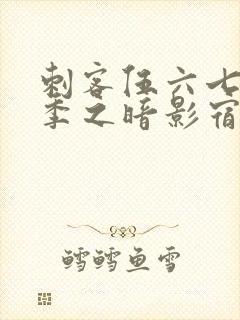 刺客伍六七
季之暗影宿
鳕鳕鱼雪